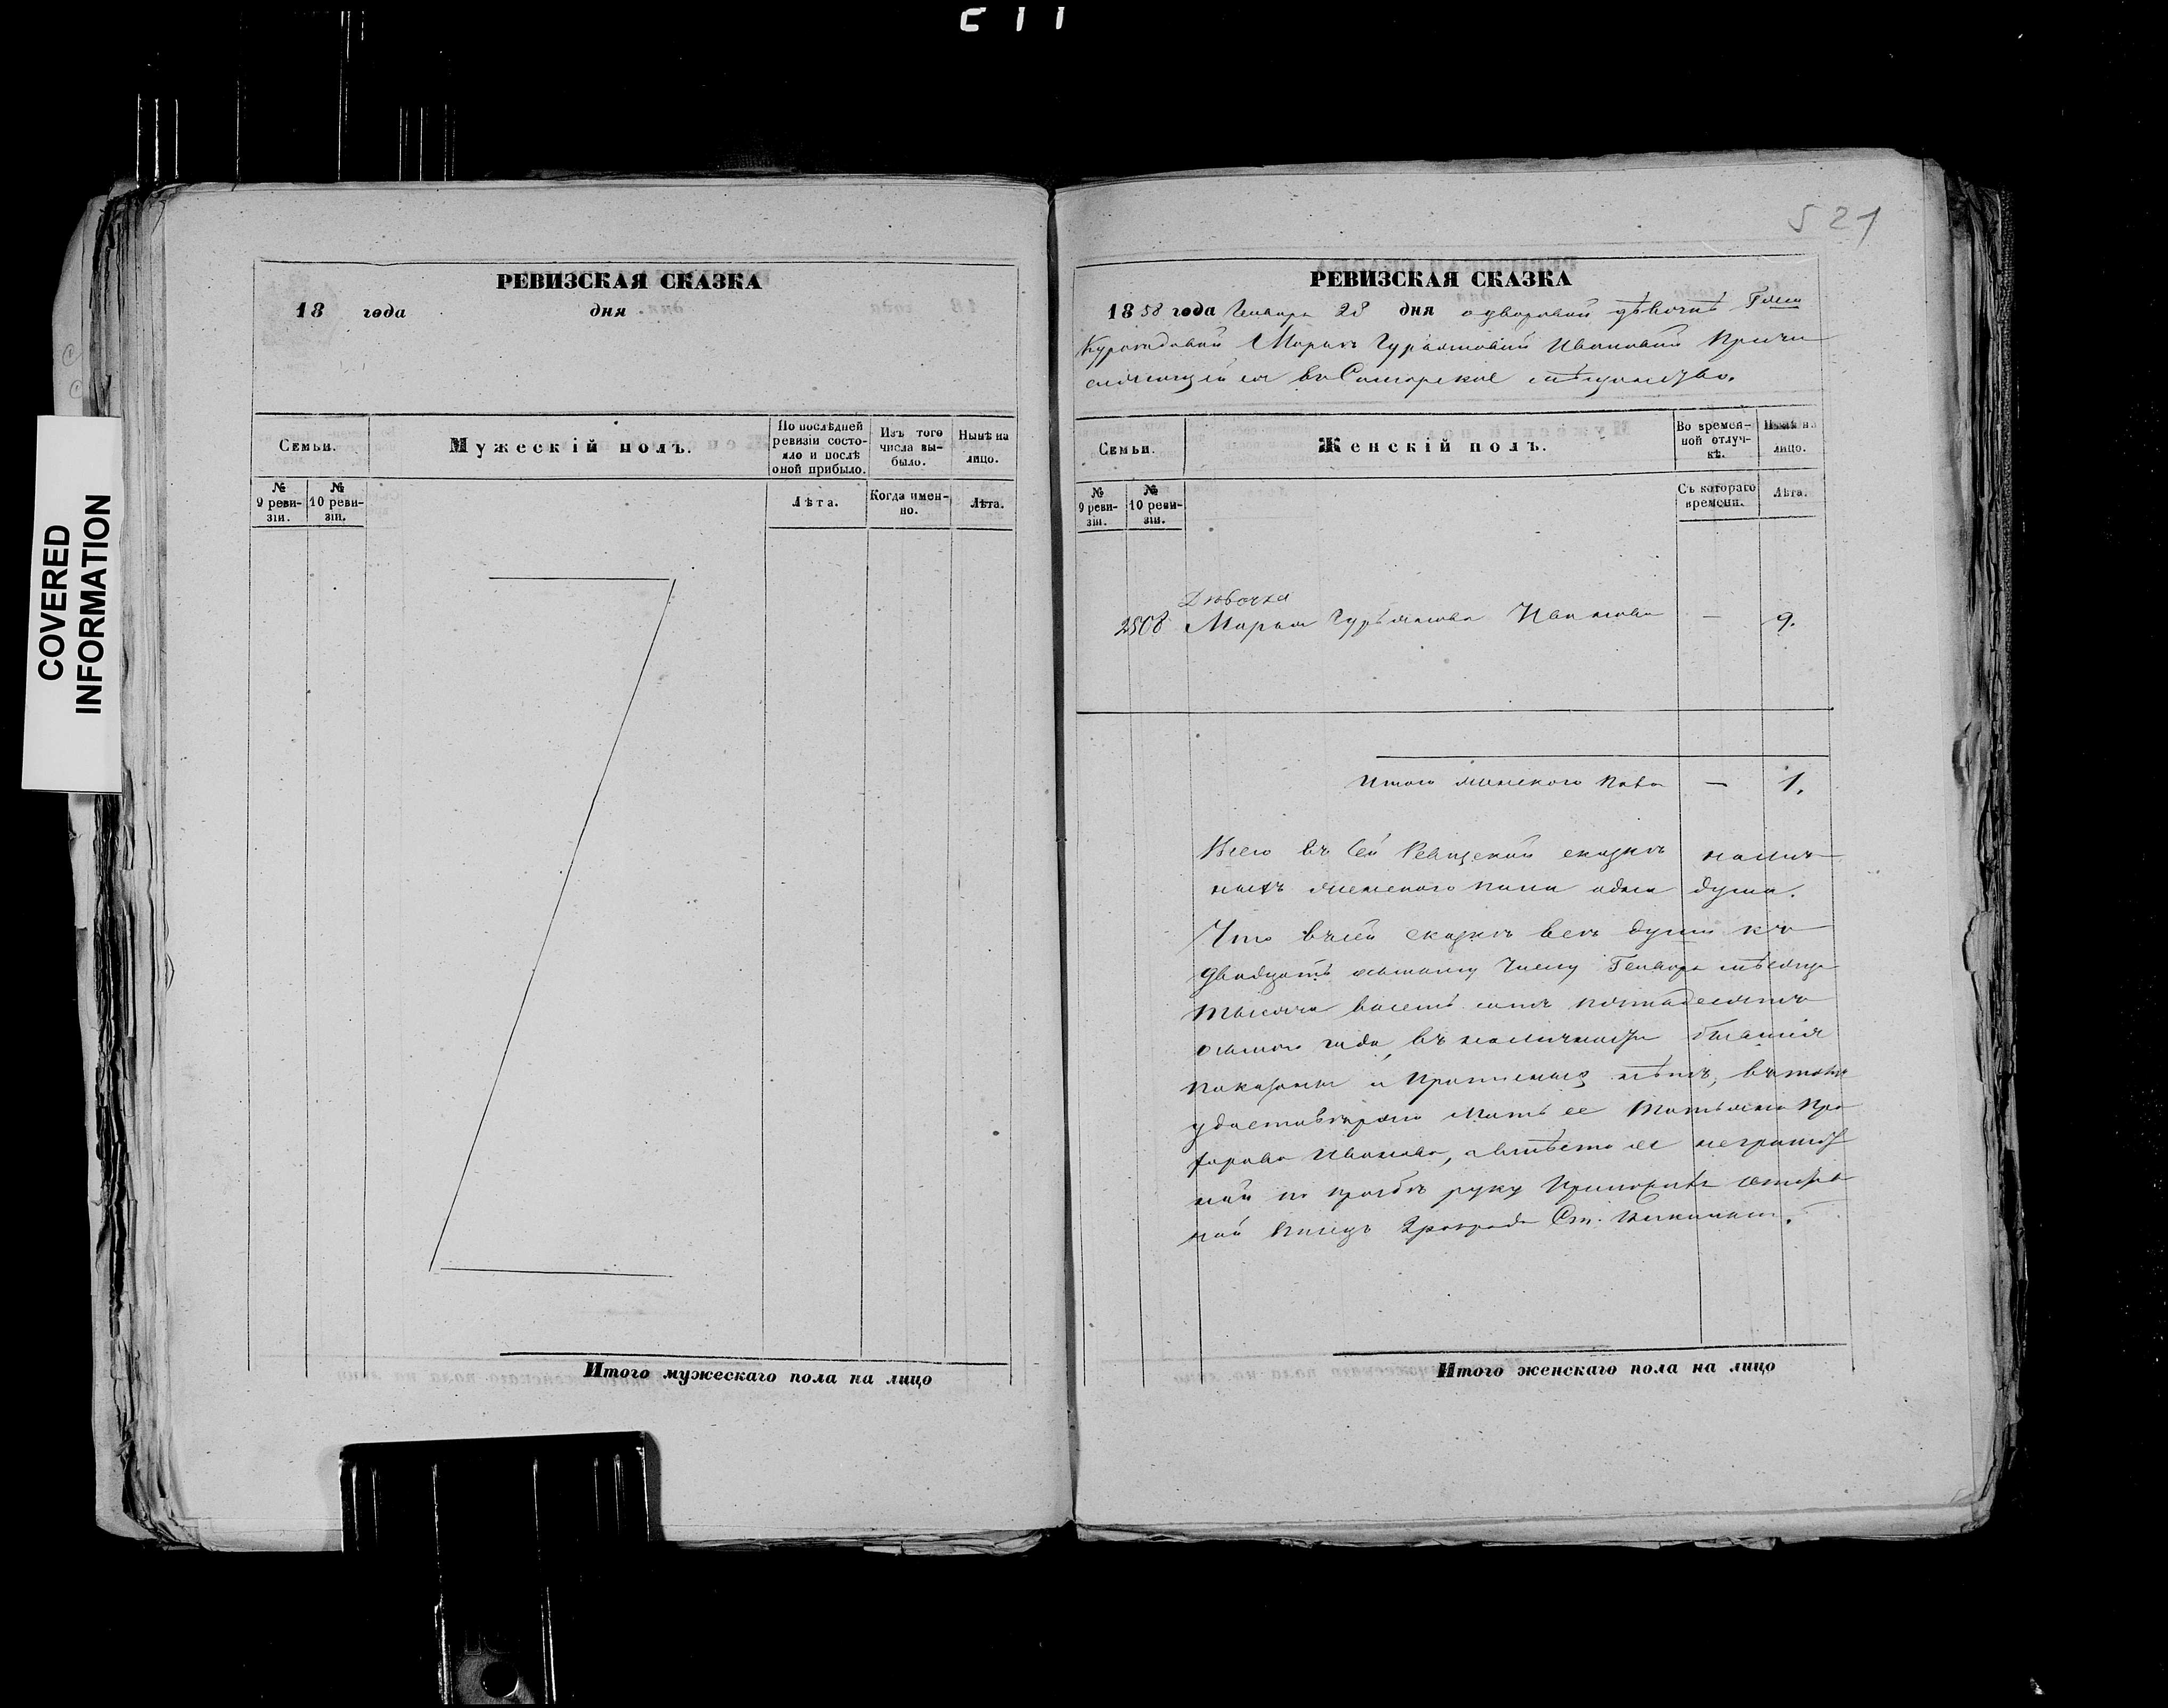 521
COVERED
INFORMATION
РЕВИЗСКАЯ СКАЗКА
18 года дня
Семьи.
Мужескій полъ.
По послѣдней ревизіи состояло и послѣ оной прибыло.
Изъ того числа выбыло.
Нынѣ на лицо.
№ 9 ревизіи.
№ 10 ревизіи.
Лѣта.
Когда именно.
Лѣта.
Итого мужескаго пола на лицо
РЕВИЗСКАЯ СКАЗКА
1858 года Генваря 28 дня о дворовой дѣвочкѣ
Марьѣ Гурьяновой Ивановой причи
сляющейся въ Самарское мѣщанство.
Семьи.
Женскій полъ.
Во временной отлучкѣ.
Нынѣ на лицо.
№ 9 ревизіи.
№ 10 ревизіи.
Съ котораго времени.
Лѣта.
Дѣвочка
2508 Марья Гурьянова Иванова — 9.
Итого женского пола — 1.
Всего въ сей Ревизской сказкѣ налич
ныхъ женского пола одна душа.
Что въ сей сказкѣ всѣ души къ
двадцать осьмому числу Генваря мѣсяца
тысяча восемь сотъ пятьдесятъ
осьмого года, въ наличности бывшія
показаны и прописныхъ нѣтъ, въ томъ
удостовѣряю мать ее Татьяна Про
хорова Иванова, а вмѣсто ее неграмот
ной по прозьбѣ руку приложилъ
ной писецъ
Итого женскаго пола на лицо